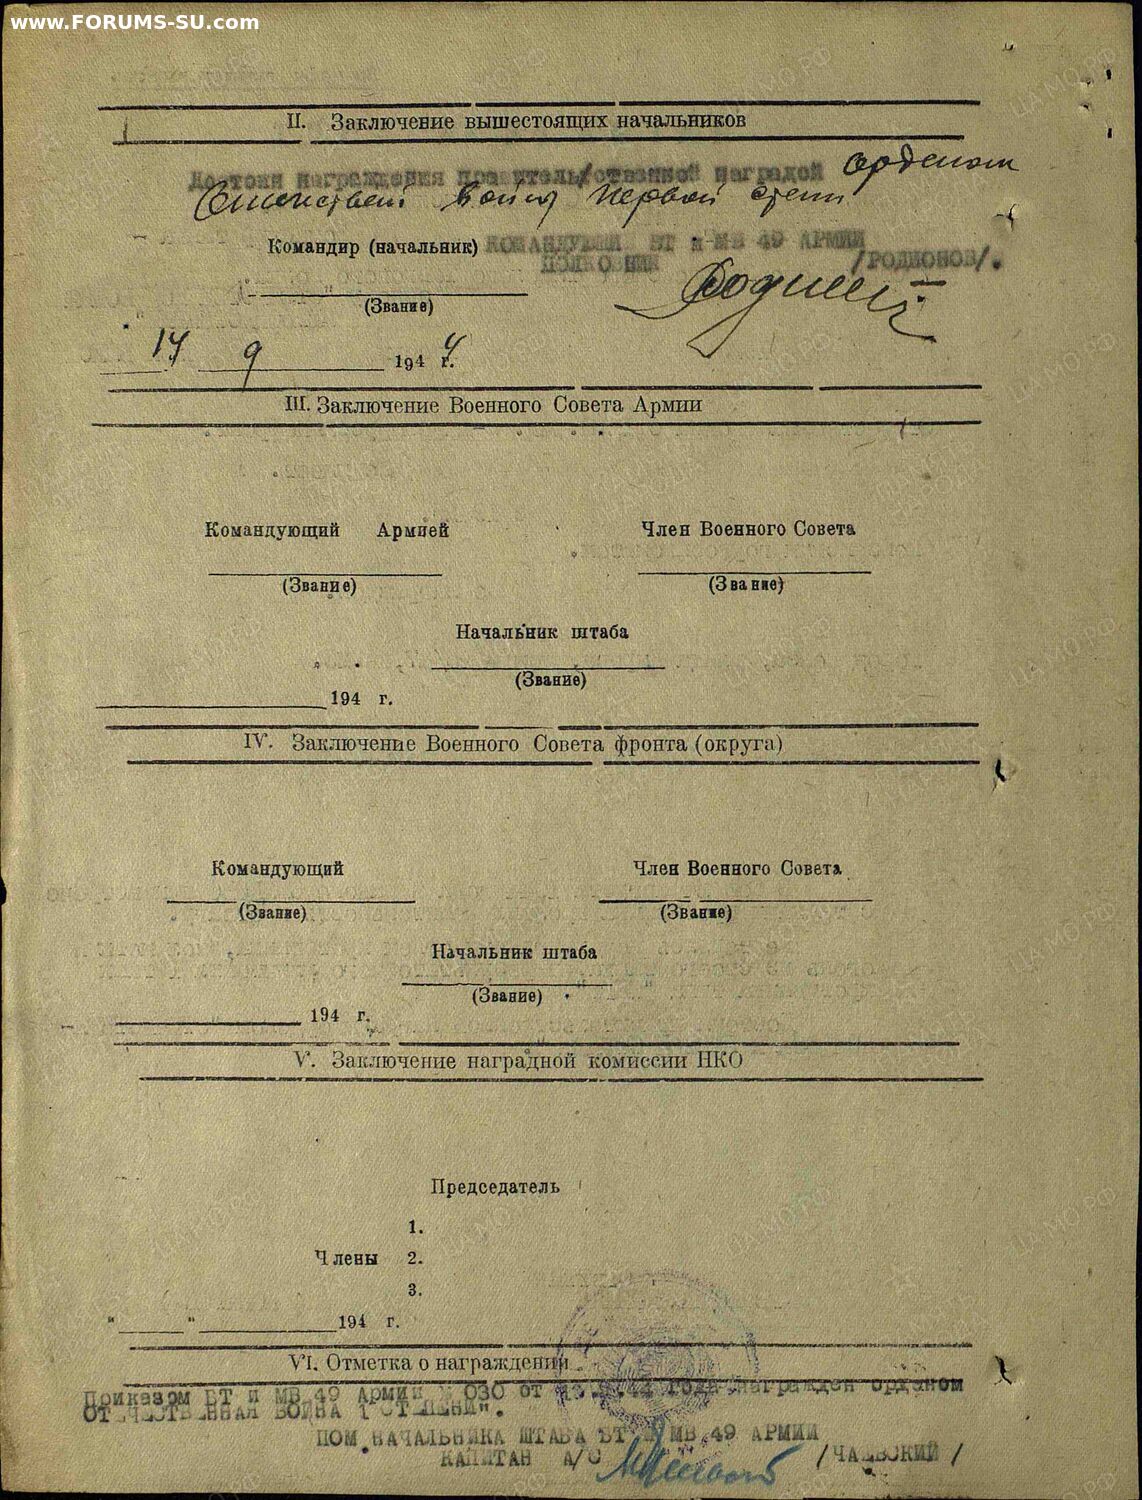 www.FORUMS-SU.com
II. Заключение вышестоящих начальников
Достоин награждения правительственной наградой орденом
Отечествен. войны первой степ.
Командир (начальник) КОМАНДУЮЩИЙ БТ и МВ 49 АРМИИ
ПОЛКОВНИК /РОДИОНОВ/.
(Звание)
14 9 1944 г.
III. Заключение Военного Совета Армии
Командующий Армией Член Военного Совета
(Звание) (Звание)
Начальник штаба
(Звание)
194 г.
IV. Заключение Военного Совета фронта (округа)
Командующий Член Военного Совета
(Звание) (Звание)
Начальник штаба
(Звание)
194 г.
V. Заключение наградной комиссии НКО
Председатель
1.
Члены 2.
3.
" " 194 г.
VI. Отметка о награждении
Приказом БТ и МВ 49 Армии 030 от года награжден орденом
ОТЕЧЕСТВЕННАЯ ВОЙНА 1 СТЕПЕНИ".
ПОМ НАЧАЛЬНИКА ШТАБА БТ И МВ 49 АРМИИ
КАПИТАН А/С /ЧАЕВСКИЙ/